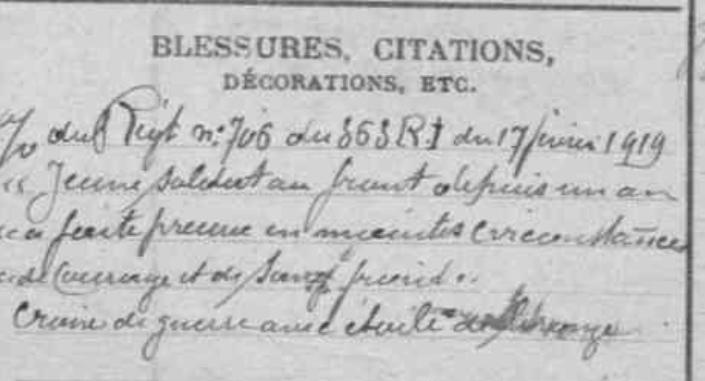 BLESSURES, CITATIONS,
DÉCORATIONS, ETC.
du Régt n: 706 du 363 RI du 17 février 1919
"Jeune soldat au front depuis un an
" a faite preuve en maintes circonstances
" de Courage et de Sang froid".
Croix de guerre avec étoile de bronze